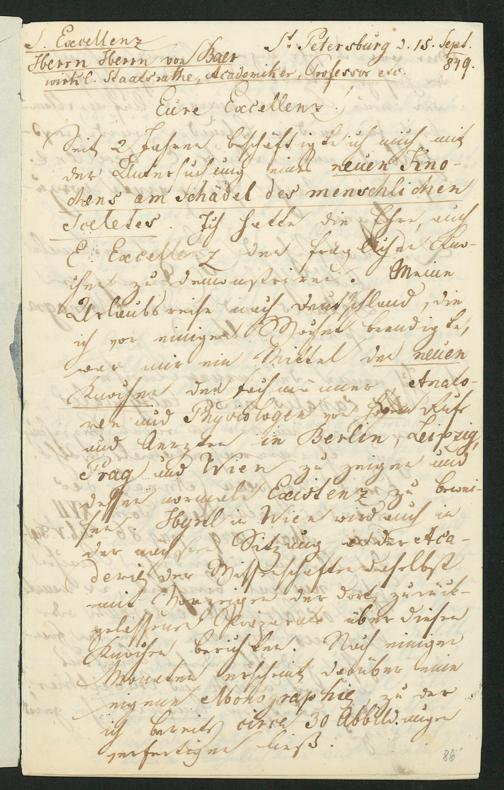 S. Excellenz
Herrn Herrn von Baer
wirkl. Staatsrathe, Academiker, Professor etc.
St Petersburg d. 15. Sept.
849.
Eure Excellenz!
Seit 2 Jahren beschäftigte ich mich mit
der Untersuchung eines neuen Kno-
chens am Schädel des menschlichen
Sceletes. Ich hatte die Ehre, auch
E. Excellenz den fraglichen Kno-
chen zu demonstriren. Meine
Urlaubsreise nach Deutschland, die
ich vor einigen Wochen beendigte,
war mir ein Mittel den neuen
Knochen den Anato-
men und Physiologen von Ruf
und Aerzten in Berlin, Leipzig,
Prag und Wien zu zeigen und
dessen normale Existenz zu bewei-
sen. Hyrtl in Wien wird auch in
der nächsten Sitzung der Aca-
demie der Wissenschaften daselbst
mit Vorzeigen der dort zurück-
gelassenen Präparate über diesen
Knochen berichten. Nach einigen
Monaten erscheint darüber eine
eigene Monographie, zu der
ich bereits circa 30 Abbildungen
verfertigen ließ.
86